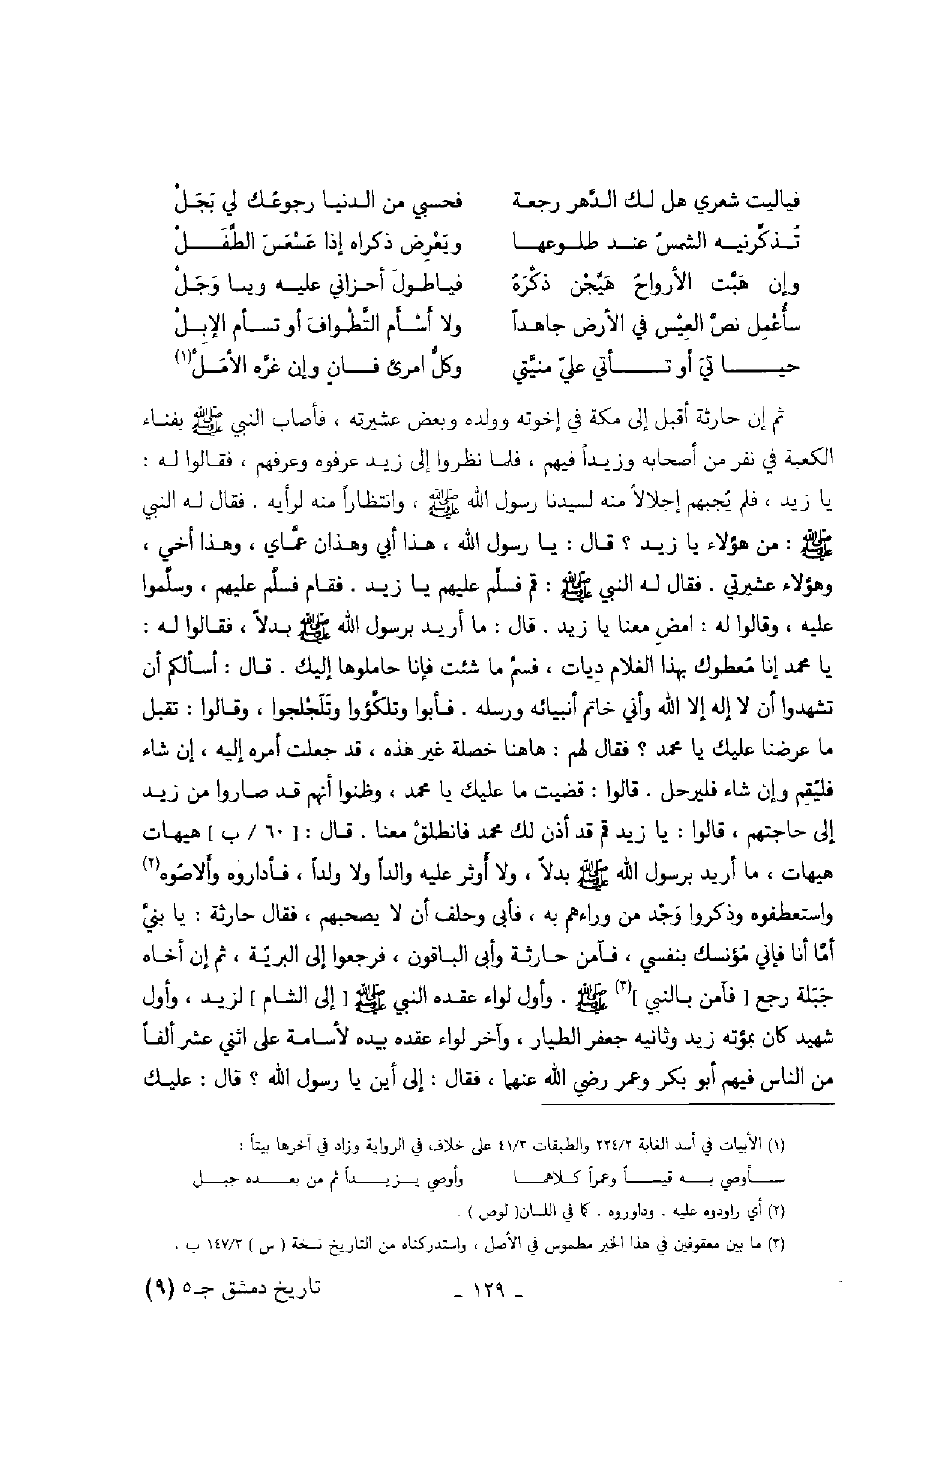 فياليت شعري هل لك الدَّهر رجعة فحسبي من الدنيا رجوعُك لي بَجَلْ
تُذكِّرنيه الشمسُ عند طلوعها ويَعْرِض ذكراه إذا عَسْعَسَ الطَّفَلْ
وإن هَبَّت الأرواحُ هَيَّجْن ذكْرَهُ فياطولَ أحزاني عليه ويا وَجَلْ
سأُعْمِل نصَّ العيْس في الأرض جاهداً ولا أسْأم التَّطْوافَ أو تسأم الإبلْ
حياتيَ أو تأتي عليّ منيَّتي وكلُّ امرئ فانٍ وإن غرَّه الأمَلْ(١)
ثم إن حارثة أقبل إلى مكة في إخوته وولده وبعض عشيرته ، فأصاب النبي ﷺ بفناء
الكعبة في نفر من أصحابه وزيداً فيهم ، فلما نظروا إلى زيد عرفوه وعرفهم ، فقالوا له :
يا زيد ، فلم يُجبهم إجلالاً منه لسيدنا رسول الله ﷺ ، وانتظاراً منه لرأيه . فقال له النبي
ﷺ : من هؤلاء يا زيد ؟ قال : يا رسول الله ، هذا أبي وهذان عمّاي ، وهذا أخي ،
وهؤلاء عشيرتي . فقال له النبي ﷺ : قم فسلِّم عليهم يا زيد . فقام فسلَّم عليهم ، وسلَّموا
عليه ، وقالوا له : امضِ معنا يا زيد . قال : ما أريد برسول الله ﷺ بدلاً ، فقالوا له :
يا محمد إنا مُعطوك بهذا الغلام دِيات ، فسمِّ ما شئت فإنا حاملوها إليك . قال : أسألكم أن
تشهدوا أن لا إله إلا الله وأني خاتم أنبيائه ورسله . فأبوا وتلكَّؤوا وتَلَجْلجوا ، وقالوا : تقبل
ما عرضنا عليك يا محمد ؟ فقال لهم : هاهنا خصلة غير هذه ، قد جعلت أمره إليه ، إن شاء
فليُقم وإن شاء فليرحل . قالوا : قضيت ما عليك يا محمد ، وظنوا أنهم قد صاروا من زيد
إلى حاجتهم ، قالوا : يا زيد قم قد أذن لك محمد فانطلقْ معنا . قال : [ ٦٠ / ب ] هيهات
هيهات ، ما أريد برسول الله ﷺ بدلاً ، ولا أُوثر عليه والداً ولا ولداً ، فأداروه وألاصُوه(٢)
واستعطفوه وذكروا وَجْد من وراءهم به ، فأبى وحلف أن لا يصحبهم ، فقال حارثة : يا بنيَّ
أمَّا أنا فإني مُؤنسك بنفسي ، فآمن حارثة وأبى الباقون ، فرجعوا إلى البريّة ، ثم إن أخاه
جَبَلة رجع [ فآمن بالنبي ](٣) ﷺ . وأول لواء عقده النبي ﷺ [ إلى الشام ] لزيد ، وأول
شهيد كان بمؤته زيد وثانيه جعفر الطيار ، وآخر لواء عقده بيده لأسامة على اثني عشر ألفاً
من الناس فيهم أبو بكر وعمر رضي الله عنهما ، فقال : إلى أين يا رسول الله ؟ قال : عليك
(١) الأبيات في أسد الغابة ٢٢٤/٢ والطبقات ٤١/٣ على خلاف في الرواية وزاد في آخرها بيتاً :
سأوصي به قيساً وعمراً كلاهما وأوصي يزيداً ثم من بعده جبل
(٢) أي راودوه عليه . وداوروه . كما في اللسان( لوص ) .
(٣) ما بين معقوفين في هذا الخبر مطموس في الأصل ، واستدركناه من التاريخ نسخة ( س ) ١٤٧/٣ ب .
ـ ١٢٩ ـ تاريخ دمشق جـ٥ (٩)